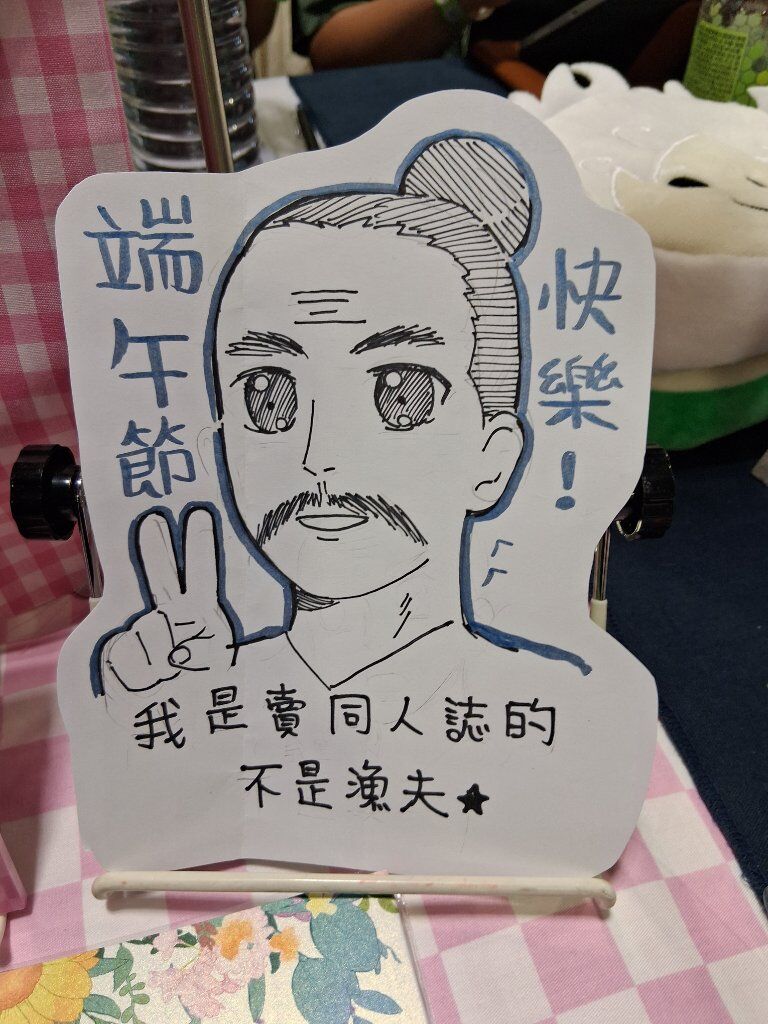 端午節
快樂！
我是賣同人誌的
不是漁夫★